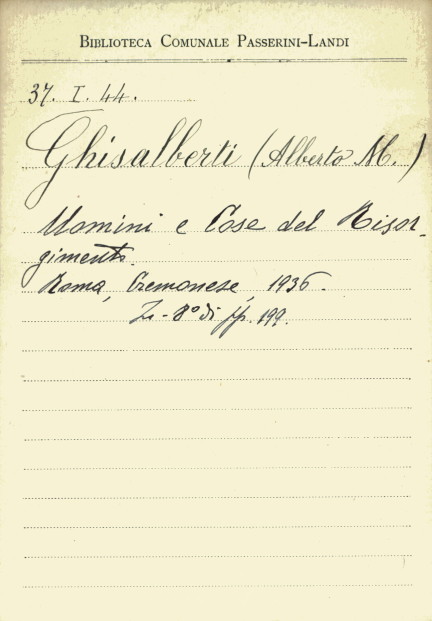 BIBLIOTECA COMUNALE PASSERINI-LANDI
37. I. 44.
Ghisalberti (Alberto M.)
Uomini e Cose del Risor-
gimento.
Roma, Cremonese, 1936.
8° di pp. 199.